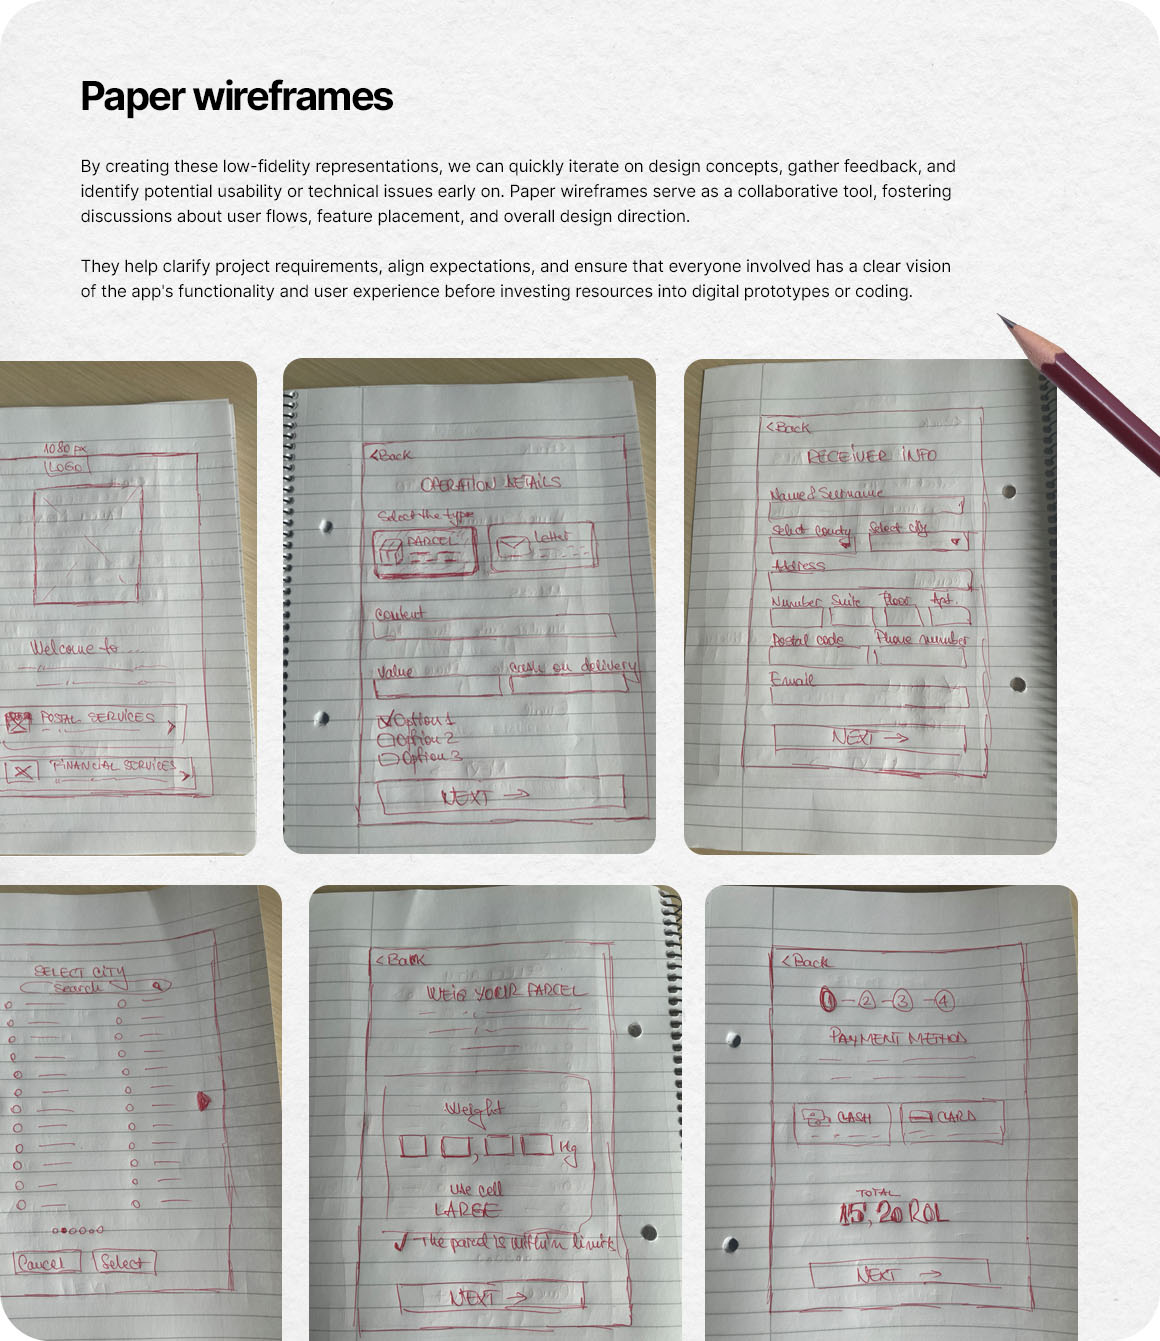 Paper wireframes
By creating these low-fidelity representations, we can quickly iterate on design concepts, gather feedback, and
identify potential usability or technical issues early on. Paper wireframes serve as a collaborative tool, fostering
discussions about user flows, feature placement, and overall design direction.
They help clarify project requirements, align expectations, and ensure that everyone involved has a clear vision
of the app's functionality and user experience before investing resources into digital prototypes or coding.
1080 px
LOGO
Welcome to ...
POSTAL SERVICES
FINANCIAL SERVICES
<Back
OPERATION DETAILS
Select the type
PARCEL
Letter
Content
Value
Cash on delivery
Option 1
Option 2
Option 3
NEXT →
<Back
RECEIVER INFO
Name & Surname
Select County
Select city
Address
Number Suite Floor Apt.
Postal code
Phone number
Email
NEXT →
SELECT CITY
Search
Cancel
Select
<Back
WEIG YOUR PARCEL
Weight
, Kg
Use cell
LARGE
✓ The parcel is within limits
NEXT →
<Back
1 - 2 - 3 - 4
PAYMENT METHOD
CASH
CARD
TOTAL
15,20 ROL
NEXT →